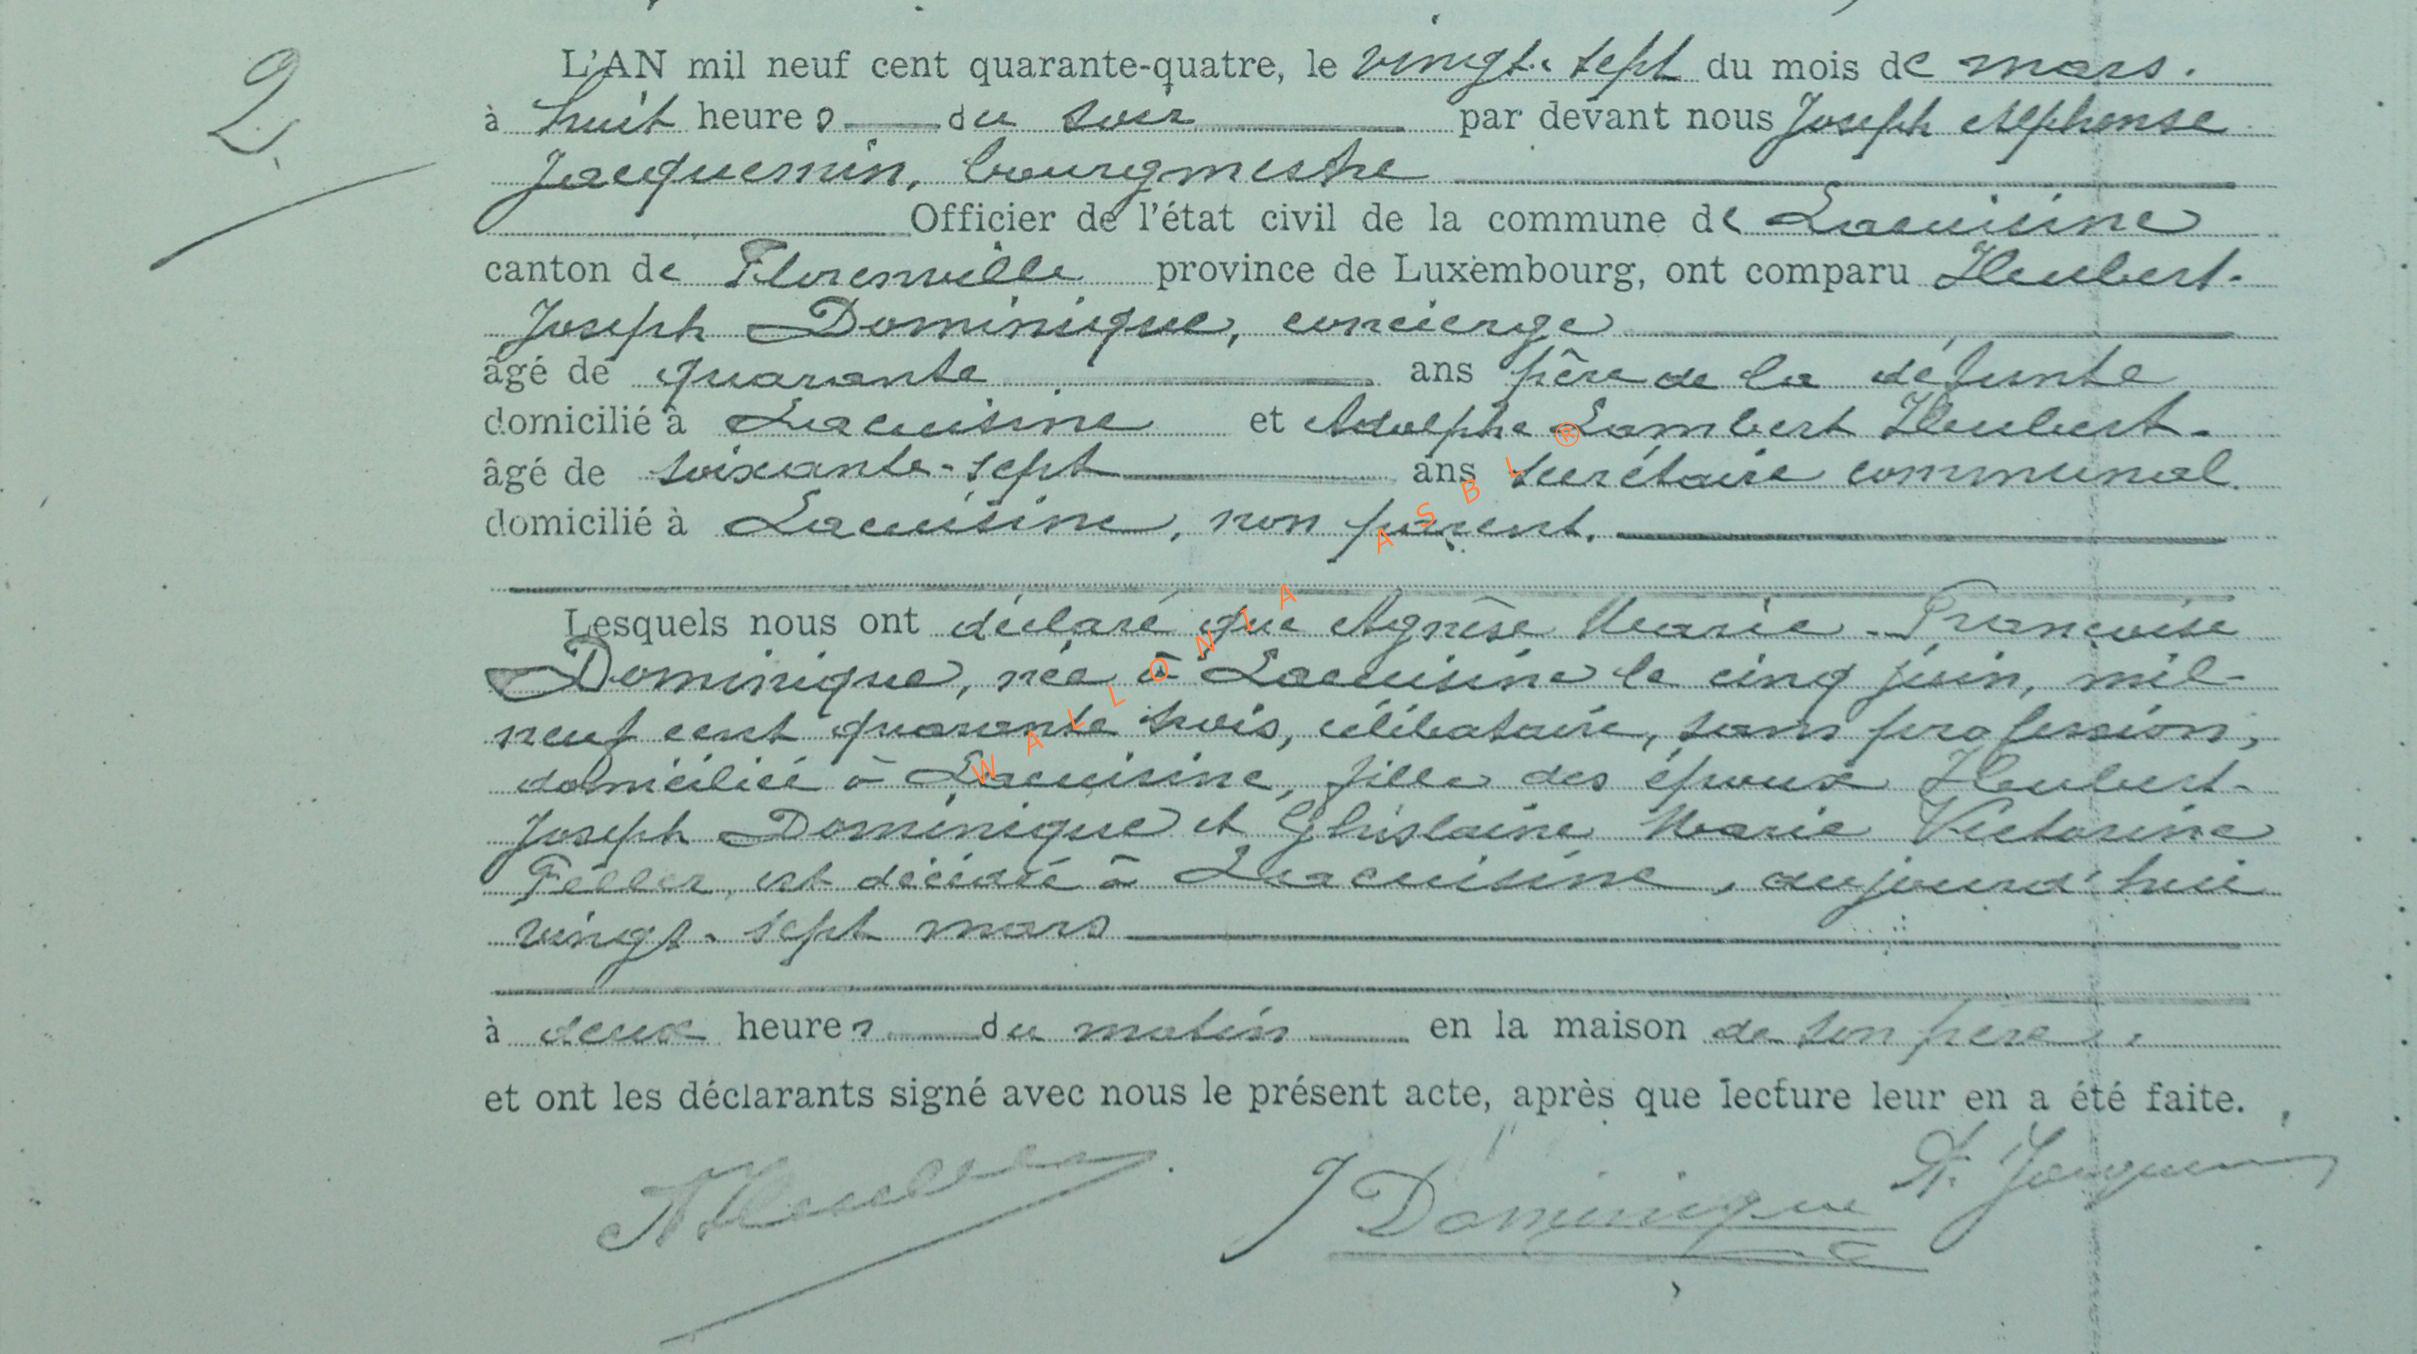 2
L'AN mil neuf cent quarante-quatre, le vingt-sept du mois de mars.
à huit heures du soir par devant nous Joseph Alphonse
Jacquemin, bourgmestre
Officier de l'état civil de la commune de Lacuisine
canton de Florenville province de Luxembourg, ont comparu Hubert-
Joseph Dominique, concierge
âgé de quarante ans père de la défunte
domicilié à Lacuisine et Adolphe Lambert
âgé de soixante-sept ans secrétaire communal
domicilié à Lacuisine, non parent.
Lesquels nous ont déclaré que Agnèse Marie-Françoise
Dominique, née à Lacuisine le cinq juin, mil-
neuf cent quarante trois, célibataire, sans profession,
domiciliée à Lacuisine, fille des époux Hubert-
Joseph Dominique et Ghislaine Marie Victorine
Feller, est décédée à Lacuisine, aujourd'hui
vingt-sept mars
à deux heures du matin en la maison de son père,
et ont les déclarants signé avec nous le présent acte, après que lecture leur en a été faite.
J Dominique
WALLONIA ASBL ®